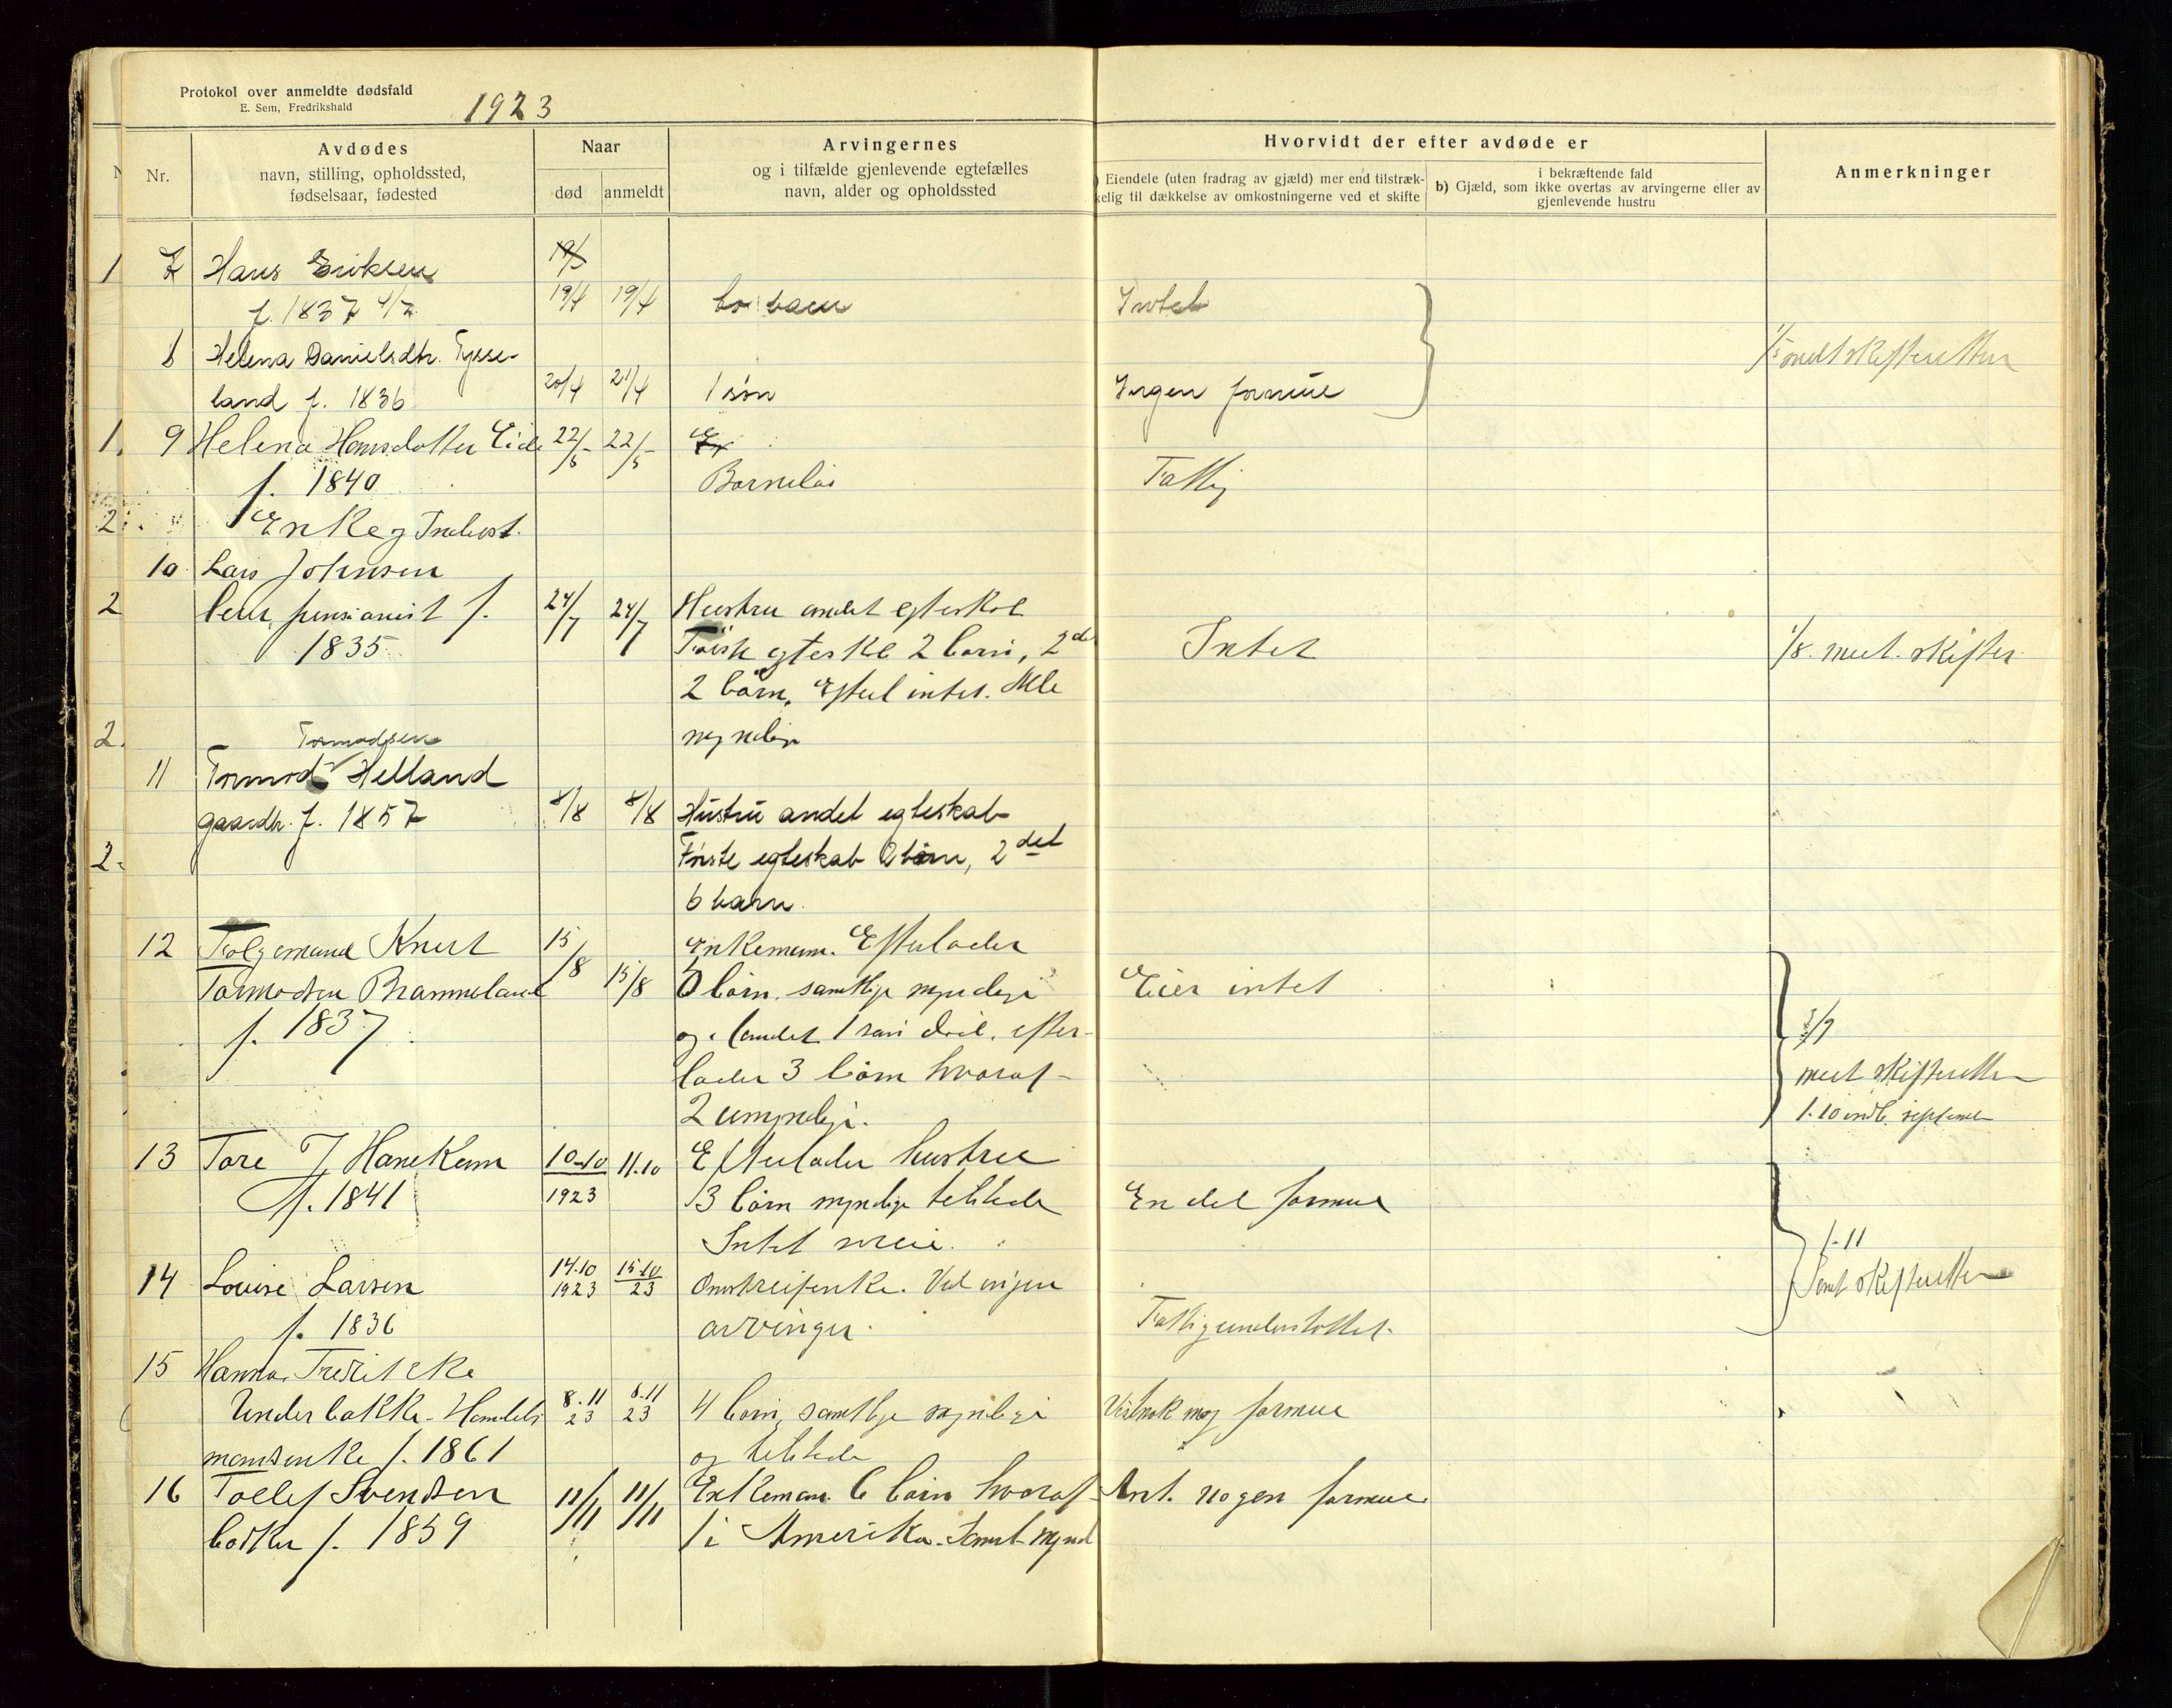 Protokol over anmeldte dødsfald
E. Sem, Fredrikshald
1923
Nr.
Avdødes
navn, stilling, opholdssted,
fødselsaar, fødested
Naar
død
anmeldt
Arvingernes
og i tilfælde gjenlevende egtefælles
navn, alder og opholdssted
Hvorvidt der efter avdøde er
Eiendele (uten fradrag av gjæld) mer end tilstræk-
kelig til dækkelse av omkostningerne ved et skifte
i bekræftende fald
b) Gjæld, som ikke overtas av arvingerne eller av
gjenlevende hustru
Anmerkninger
7 Hans Eriksen
f. 1837 4/2 19/4 19/4 Intet
8 Helena Danielsdtr. Tysse-
land f. 1836 20/4 21/4 1 søn Ingen formue
9 Helena Hansdotter Eide 22/5 22/5
f. 1840 Barnløs Fattig
Enke
10 Lars Johnsen
pensionist f. 24/7 24/7 Hustru andet egteskab
1835 Første egteskab 2 børn, 2det Intet 1/8. medt. skifter.
2 børn. Efterl intet. Alle
myndige
Tormodsen
11 Tormod Helland
gaardbr. f. 1857 8/8 8/8 Hustru andet egteskab
Første egteskab 2 børn, 2det
6 børn.
12 Følgemand Knut 15/8 Enkemann. Efterlader
Tormodsen Brammeland 15/8 børn, samtlige myndige Eier intet
f. 1837 og 1 søn død, efter-
lader 3 børn hvoraf 3/9
2 umyndige. medt skifteretten
13 Tore T. Hanekam 10-10 11.10 Efterlader hustru
f. 1841 1923 3 børn myndige tilstede En del formue
Intet 1-11
14 Louise Larsen 14.10 1923 15.10 23 Omstreifenke. Ved ingen skifteretten
f. 1836 arvinger. Fattigunderstøttet.
15 Hanna Fredrikke
Underbakke - Handels- 8.11 23 8.11 23 4 børn, samtlige myndige Vistnok nog formue
mandsenke f. 1861 og tilstede
16 Tollef Svendsen 11/11 11/11 Enkemann. 6 børn hvoraf Ant. nogen formue
bødker f. 1859 1 i Amerika. Samt. mynd